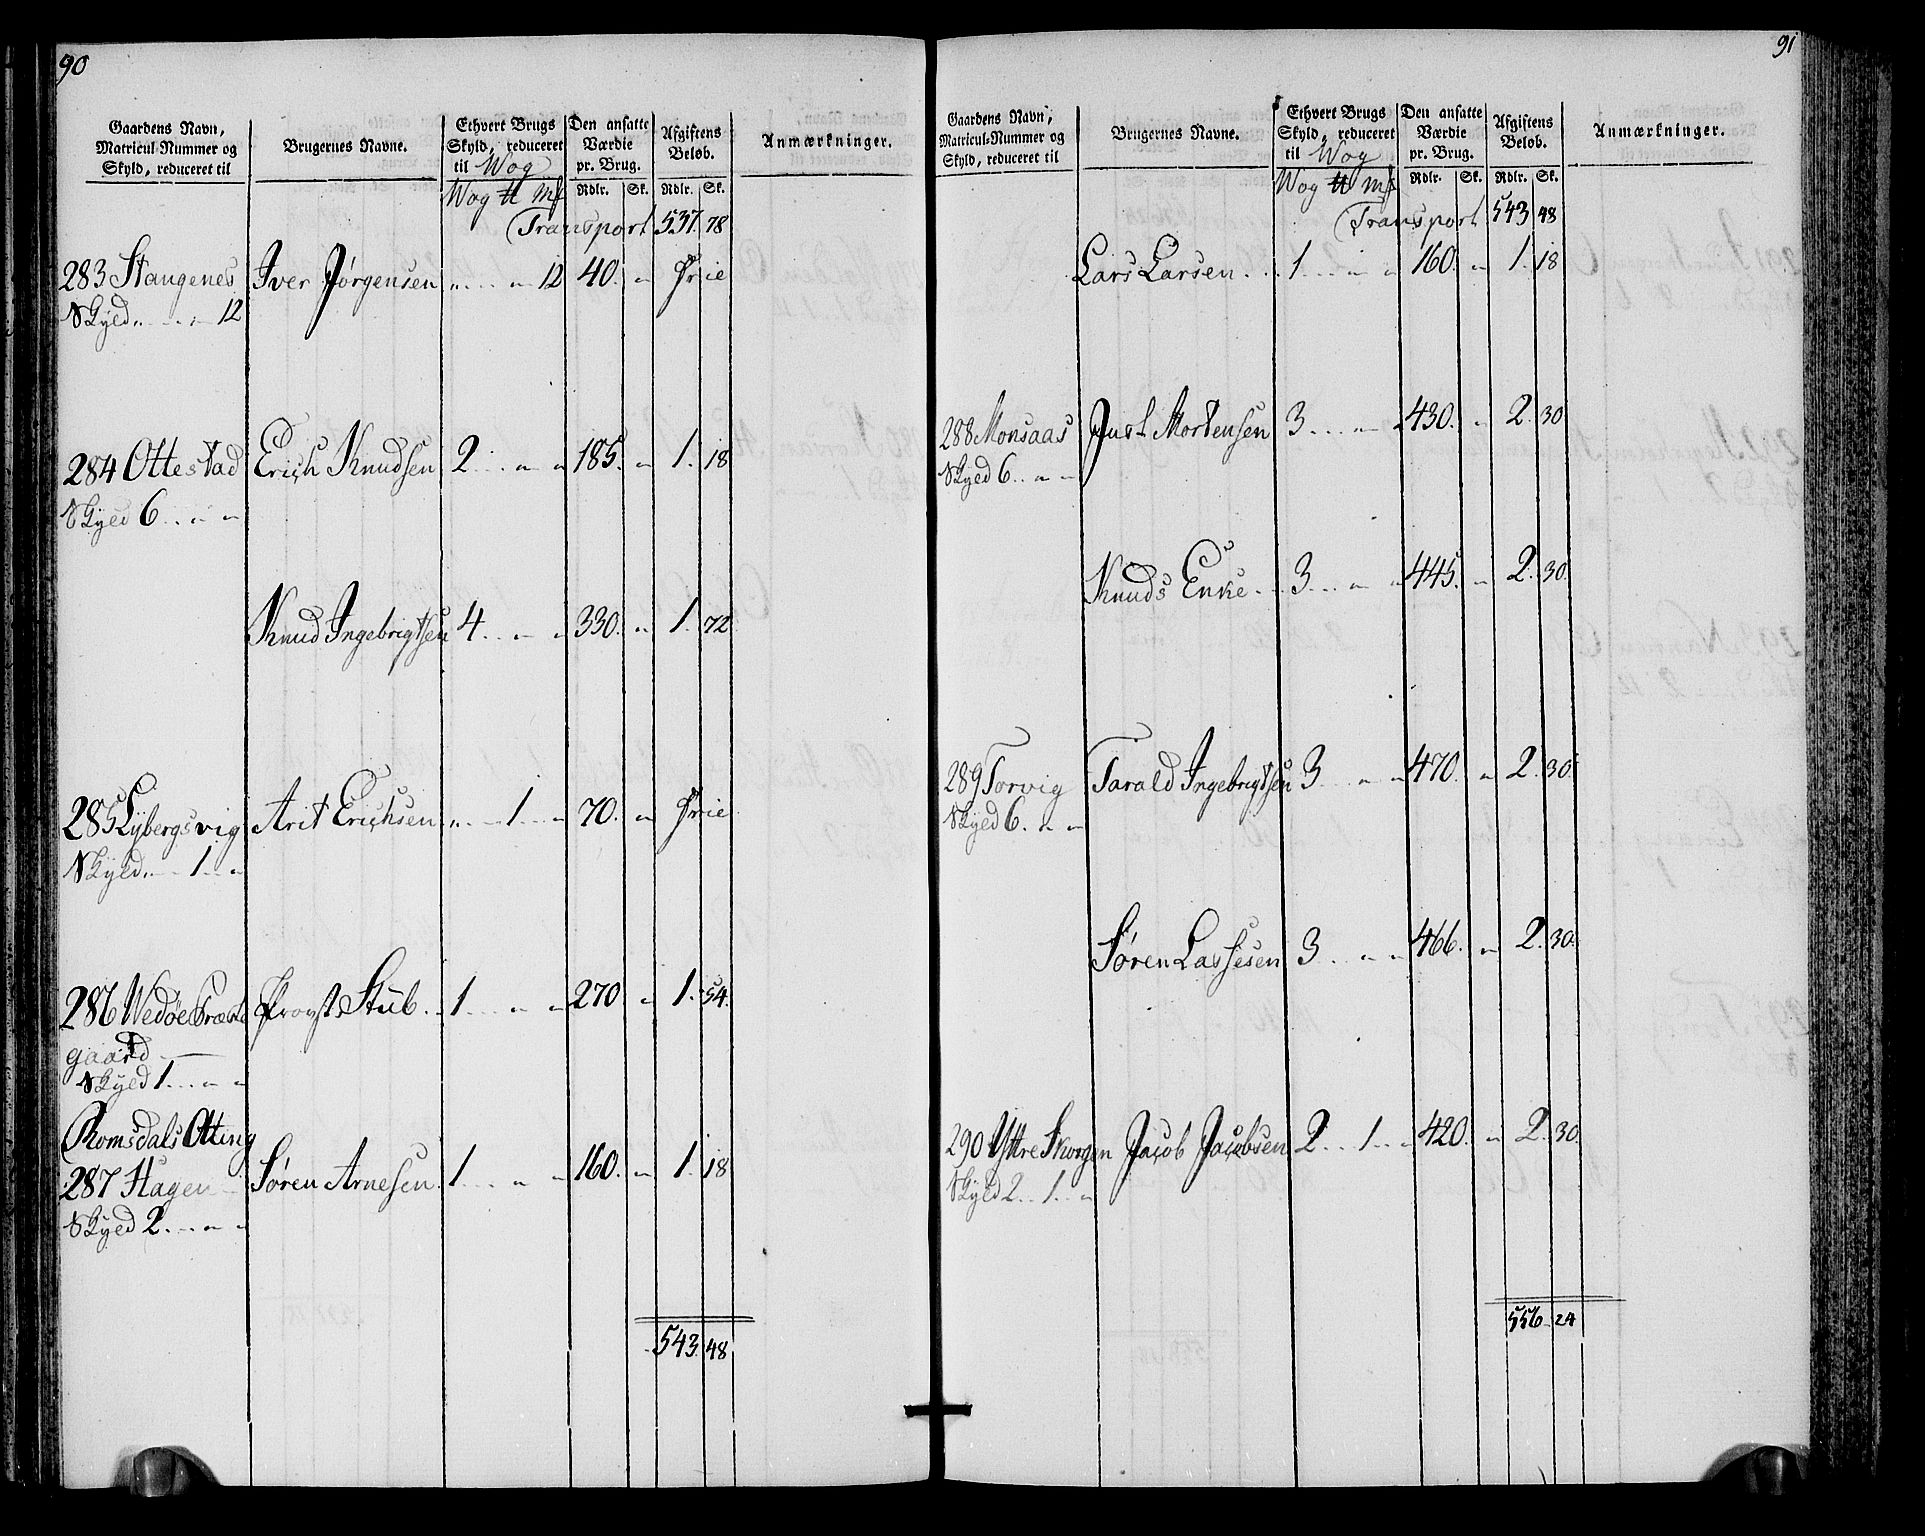 90
Gaardens Navn, Matricul-Nummer og Skyld, reduceret til | Brugernes Navne. | Ethvert Brugs Skyld, reduceret til Wog | Den ansatte Værdie pr. Brug. | Afgiftens Beløb. | Anmærkninger.
Wog ℔ Mk | Rdlr. Sk. | Rdlr. Sk.
Transport 537. 78
283 Stangenes Iver Jørgensen " " 12 40. " Frie
Skyld " " 12
284 Ottestad Erich Knudsen 2 " " 185. " 1. 18
Skyld 6 " "
Knud Ingebrigtsen 4 " " 330. " 1. 72
285 Lybergsvig Arit Erichsen " 1 " 70. " Frie
Skyld " 1 "
286 Wedøe Præste Provst Stub 1 " " 270 " 1. 54.
gaard
Skyld 1 " "
Romsdals Otting
287 Hagen Søren Arnesen 1 " " 160. " 1. 18
Skyld 2 " "
543. 48
91
Gaardens Navn, Matricul-Nummer og Skyld, reduceret til | Brugernes Navne. | Ethvert Brugs Skyld, reduceret til Wog | Den ansatte Værdie pr. Brug. | Afgiftens Beløb. | Anmærkninger.
Wog ℔ Mk | Rdlr. Sk. | Rdlr. Sk.
Transport 543 48
Lars Larsen 1 " " 160. " 1. 18
288 Monsaas Just Mortensen 3 " " 430. " 2. 30
Skyld 6 " "
Knuds Enke 3 " " 445. " 2. 30.
289 Torvig Tarald Ingebrigtsen 3 " " 470. " 2. 30.
Skyld 6. " "
Søren Lassesen 3 " " 466. " 2. 30.
290 Yttre Skorgen Jacob Jacobsen 2 1 " 420. " 2. 30.
Skyld 2 1 "
556. 24